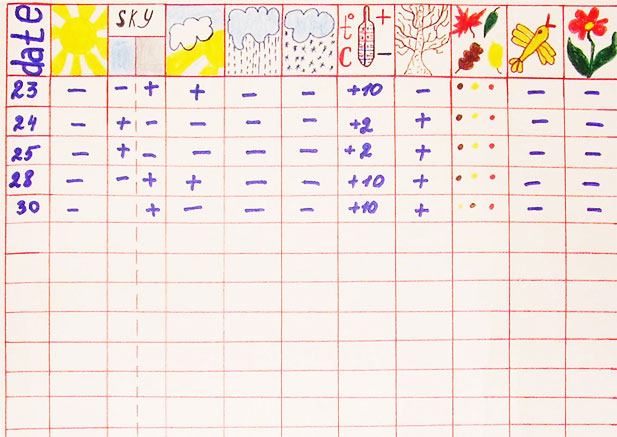 date SKY t° C + −
23 − − + + − − +10 − − −
24 − + − − − − +2 + − −
25 − + − − − − +2 + − −
28 − − + + − − +10 + − −
30 − + − − − +10 + − −